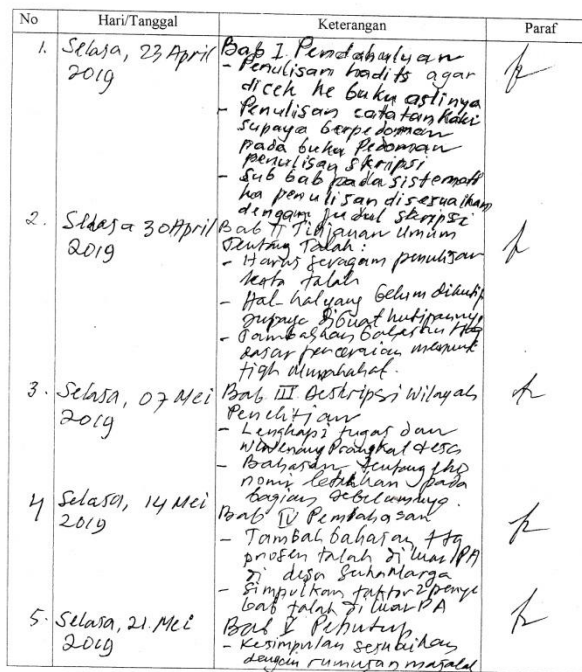 No Hari/Tanggal Keterangan Paraf
1. Selasa, 23 April 2019
Bab I Pendahuluan
- Penulisan hadits agar
dicek ke buku aslinya
- Penulisan catatan kaki
supaya berpedoman
pada buku Pedoman
penulisan skripsi
- Sub bab pada sistemati
ka penulisan disesuaikan
dengan judul skripsi
2. Selasa 30 April 2019
Bab II Tinjauan Umum
Tentang Talak:
- Harus seragam penulisan
kata talak
- Hal-hal yang belum dikutip
supaya dibuat kutipannya
- Tambahkan bahasan ttg
dasar perceraian menurut
fiqh munakahat.
3. Selasa, 07 Mei 2019
Bab III Deskripsi Wilayah
Penelitian
- Lengkapi tugas dan
wewenang Prangkat desa
- Bahasan tentang eko
nomi letakkan pada
bagian sebelumnya.
4 Selasa, 14 Mei 2019
Bab IV Pembahasan
- Tambah bahasan ttg
proses talak di luar PA
di desa SukaMarga
- Simpulkan faktor2 penye
bab talak di luar PA
5. Selasa, 21 Mei 2019
Bab V Penutup
- Kesimpulan sesuaikan
dengan rumusan masalah